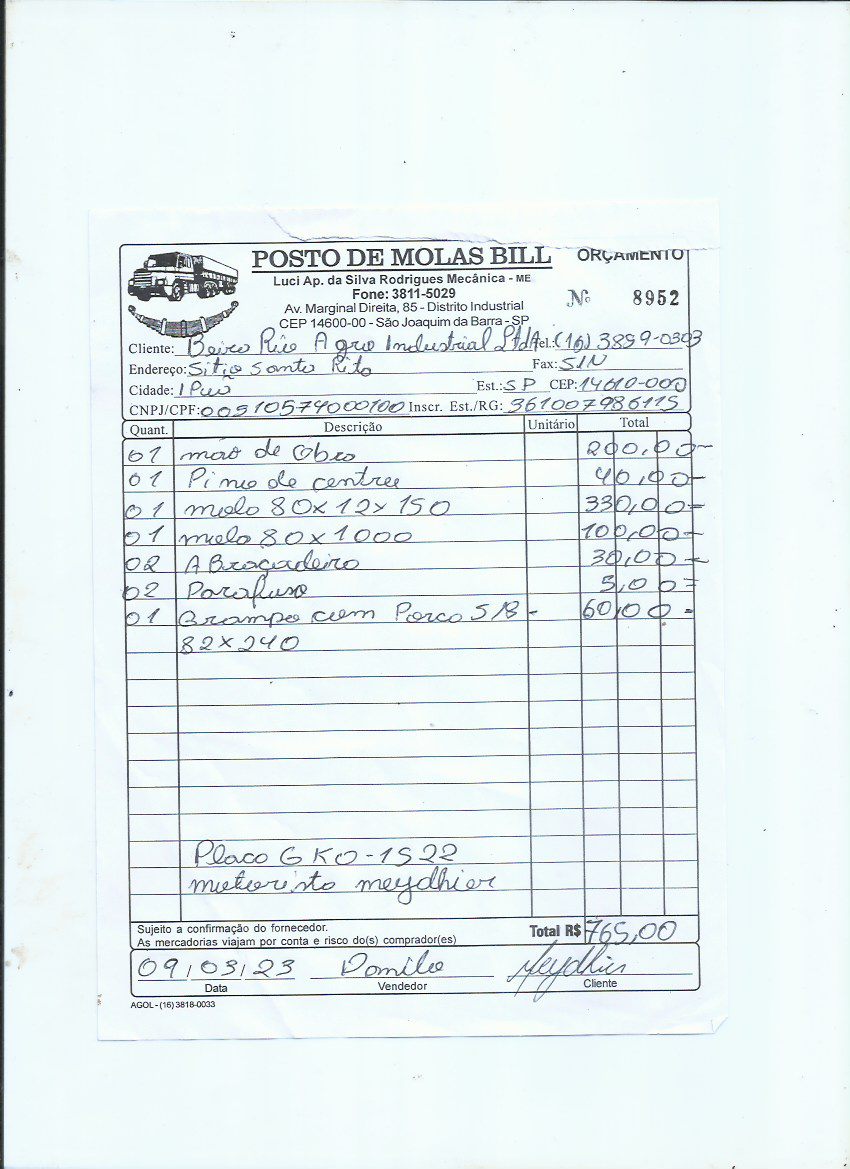 POSTO DE MOLAS BILL ORÇAMENTO
Luci Ap. da Silva Rodrigues Mecânica - ME
Fone: 3811-5029
Nº 8952
Av. Marginal Direita, 85 - Distrito Industrial
CEP 14600-00 - São Joaquim da Barra - SP
Cliente: Beira Rio Agro Industrial Ltda Tel.: (16) 3859-0303
Endereço: Sitio Santa Rita Fax: S/N
Cidade: IPuã Est.: SP CEP: 14610-000
CNPJ/CPF: 00510574000100 Inscr. Est./RG: 361007986115
Quant. Descrição Unitário Total
01 mão de obra 200,00
01 Pino de centro 40,00
01 mola 80x12x150 330,00
01 mola 80x1000 100,00
02 ABraçadeira 30,00
02 Parafuso 5,00
01 Grampo com Porca 5/8 - 60,00
82x240
Placa GKO-1522
motorista meydhier
Sujeito a confirmação do fornecedor.
As mercadorias viajam por conta e risco do(s) comprador(es)
Total R$ 765,00
09/03/23 Danilo Meydhier
Data Vendedor Cliente
AGOL - (16) 3818-0033